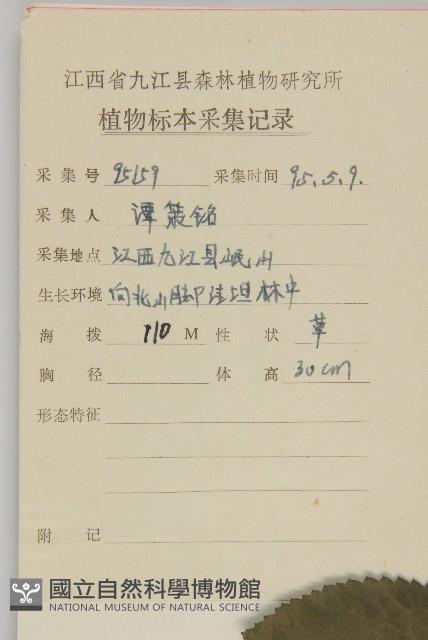 江西省九江县森林植物研究所
植物标本采集记录
采集号 95159 采集时间 95.5.9.
采集人 谭策铭
采集地点 江西九江县岷山
生长环境 向北山脚洼坦林中
海拨 110 M 性状 草
胸径 体高 30cm
形态特征
附记
國立自然科學博物館
NATIONAL MUSEUM OF NATURAL SCIENCE